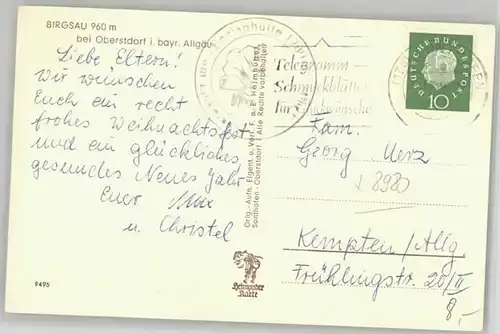 BIRGSAU 960 m
bei Oberstdorf i. bayr. Allgäu
Liebe Eltern!
Wir wünschen
Euch ein recht
frohes Weihnachtsfest
und ein glückliches
gesundes Neues Jahr
Euer Max
u. Christel
9495
Orig.-Aufn. Eigent. u. Verl. F. u. E. Heimhuber
Sonthofen - Oberstdorf i. Allg. Alle Rechte vorbehalten!
Heimhuber
Karte
Telegramm
Schmuckblätter
für Glückwünsche
DEUTSCHE BUNDESPOST
10
Fam.
Georg Merz
8980
Kempten/Allg.
Frühlingstr. 20/II
8,-